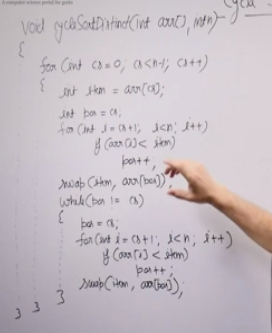 A computer science portal for geeks
Cycle
void cycleSortDistinct(int arr[], int n)
{
for (int cs=0; cs<n-1; cs++)
{
int item = arr[cs];
int pos = cs;
for (int i=cs+1; i<n; i++)
if (arr[i] < item)
pos++;
swap(item, arr[pos]);
while(pos != cs)
{
pos = cs;
for(int i=cs+1; i<n; i++)
if (arr[i] < item)
pos++;
swap(item, arr[pos]);
} } }